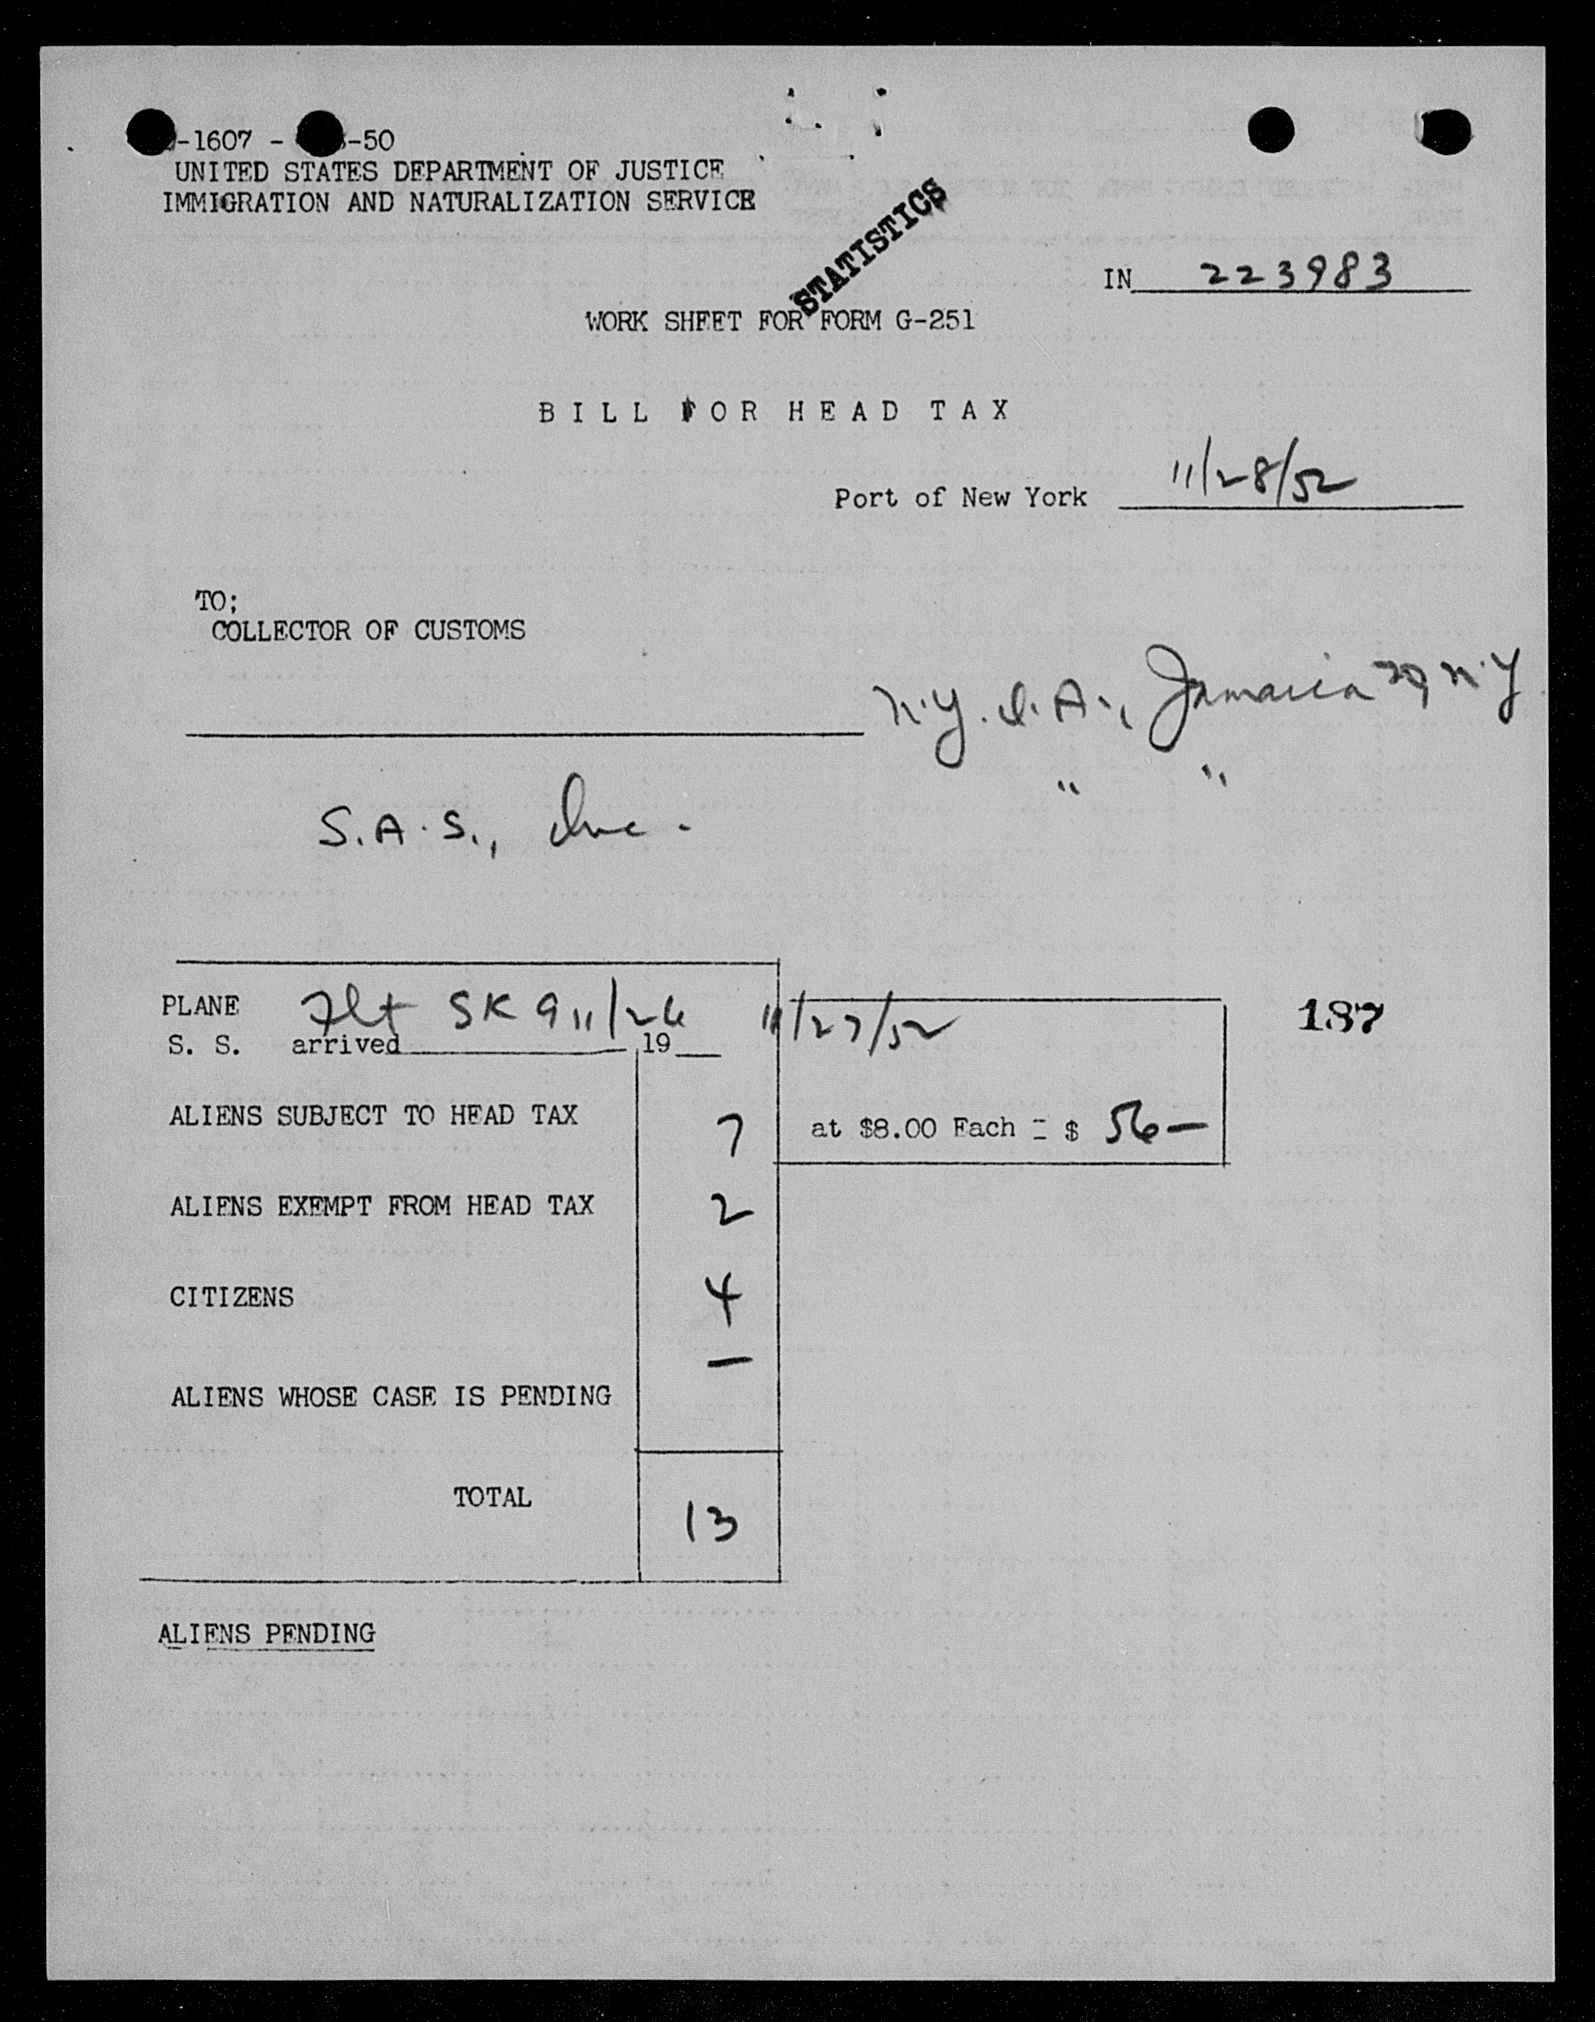 -1607 - -50
UNITED STATES DEPARTMENT OF JUSTICE
IMMIGRATION AND NATURALIZATION SERVICE
STATISTICS
IN 223983
WORK SHEET FOR FORM G-251
BILL FOR HEAD TAX
Port of New York 11/28/52
TO;
COLLECTOR OF CUSTOMS
N.Y. I.A., Jamaica N.Y
" "
S.A.S., Inc.
PLANE Flt SK 911/26 11/27/52
187
S. S. arrived 19
ALIENS SUBJECT TO HEAD TAX 7 at $8.00 Each = $ 56—
ALIENS EXEMPT FROM HEAD TAX 2
CITIZENS 4
—
ALIENS WHOSE CASE IS PENDING
TOTAL 13
ALIENS PENDING